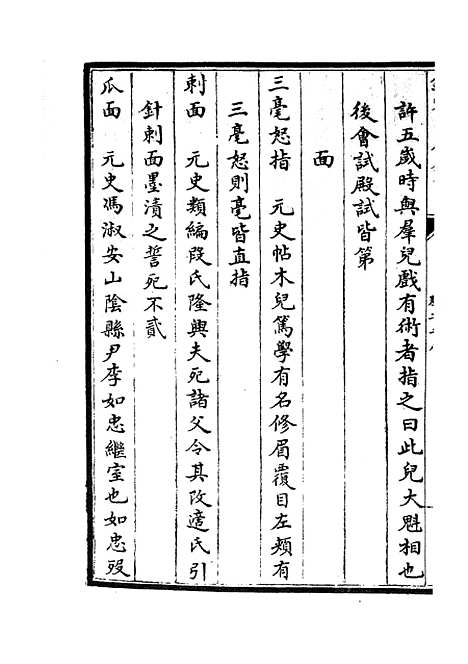 許五歲時與羣兒戲有術者指之曰此兒大魁相也
後會試殿試皆第
面
三毫怒指 元史帖木兒篤學有名修眉覆目左頰有
三毫怒則毫皆直指
刺面 元史類編段氏隆興夫死諸父令其改適氏引
針刺面墨漬之誓死不貳
爪面 元史馮淑安山陰縣尹李如忠繼室也如忠歿